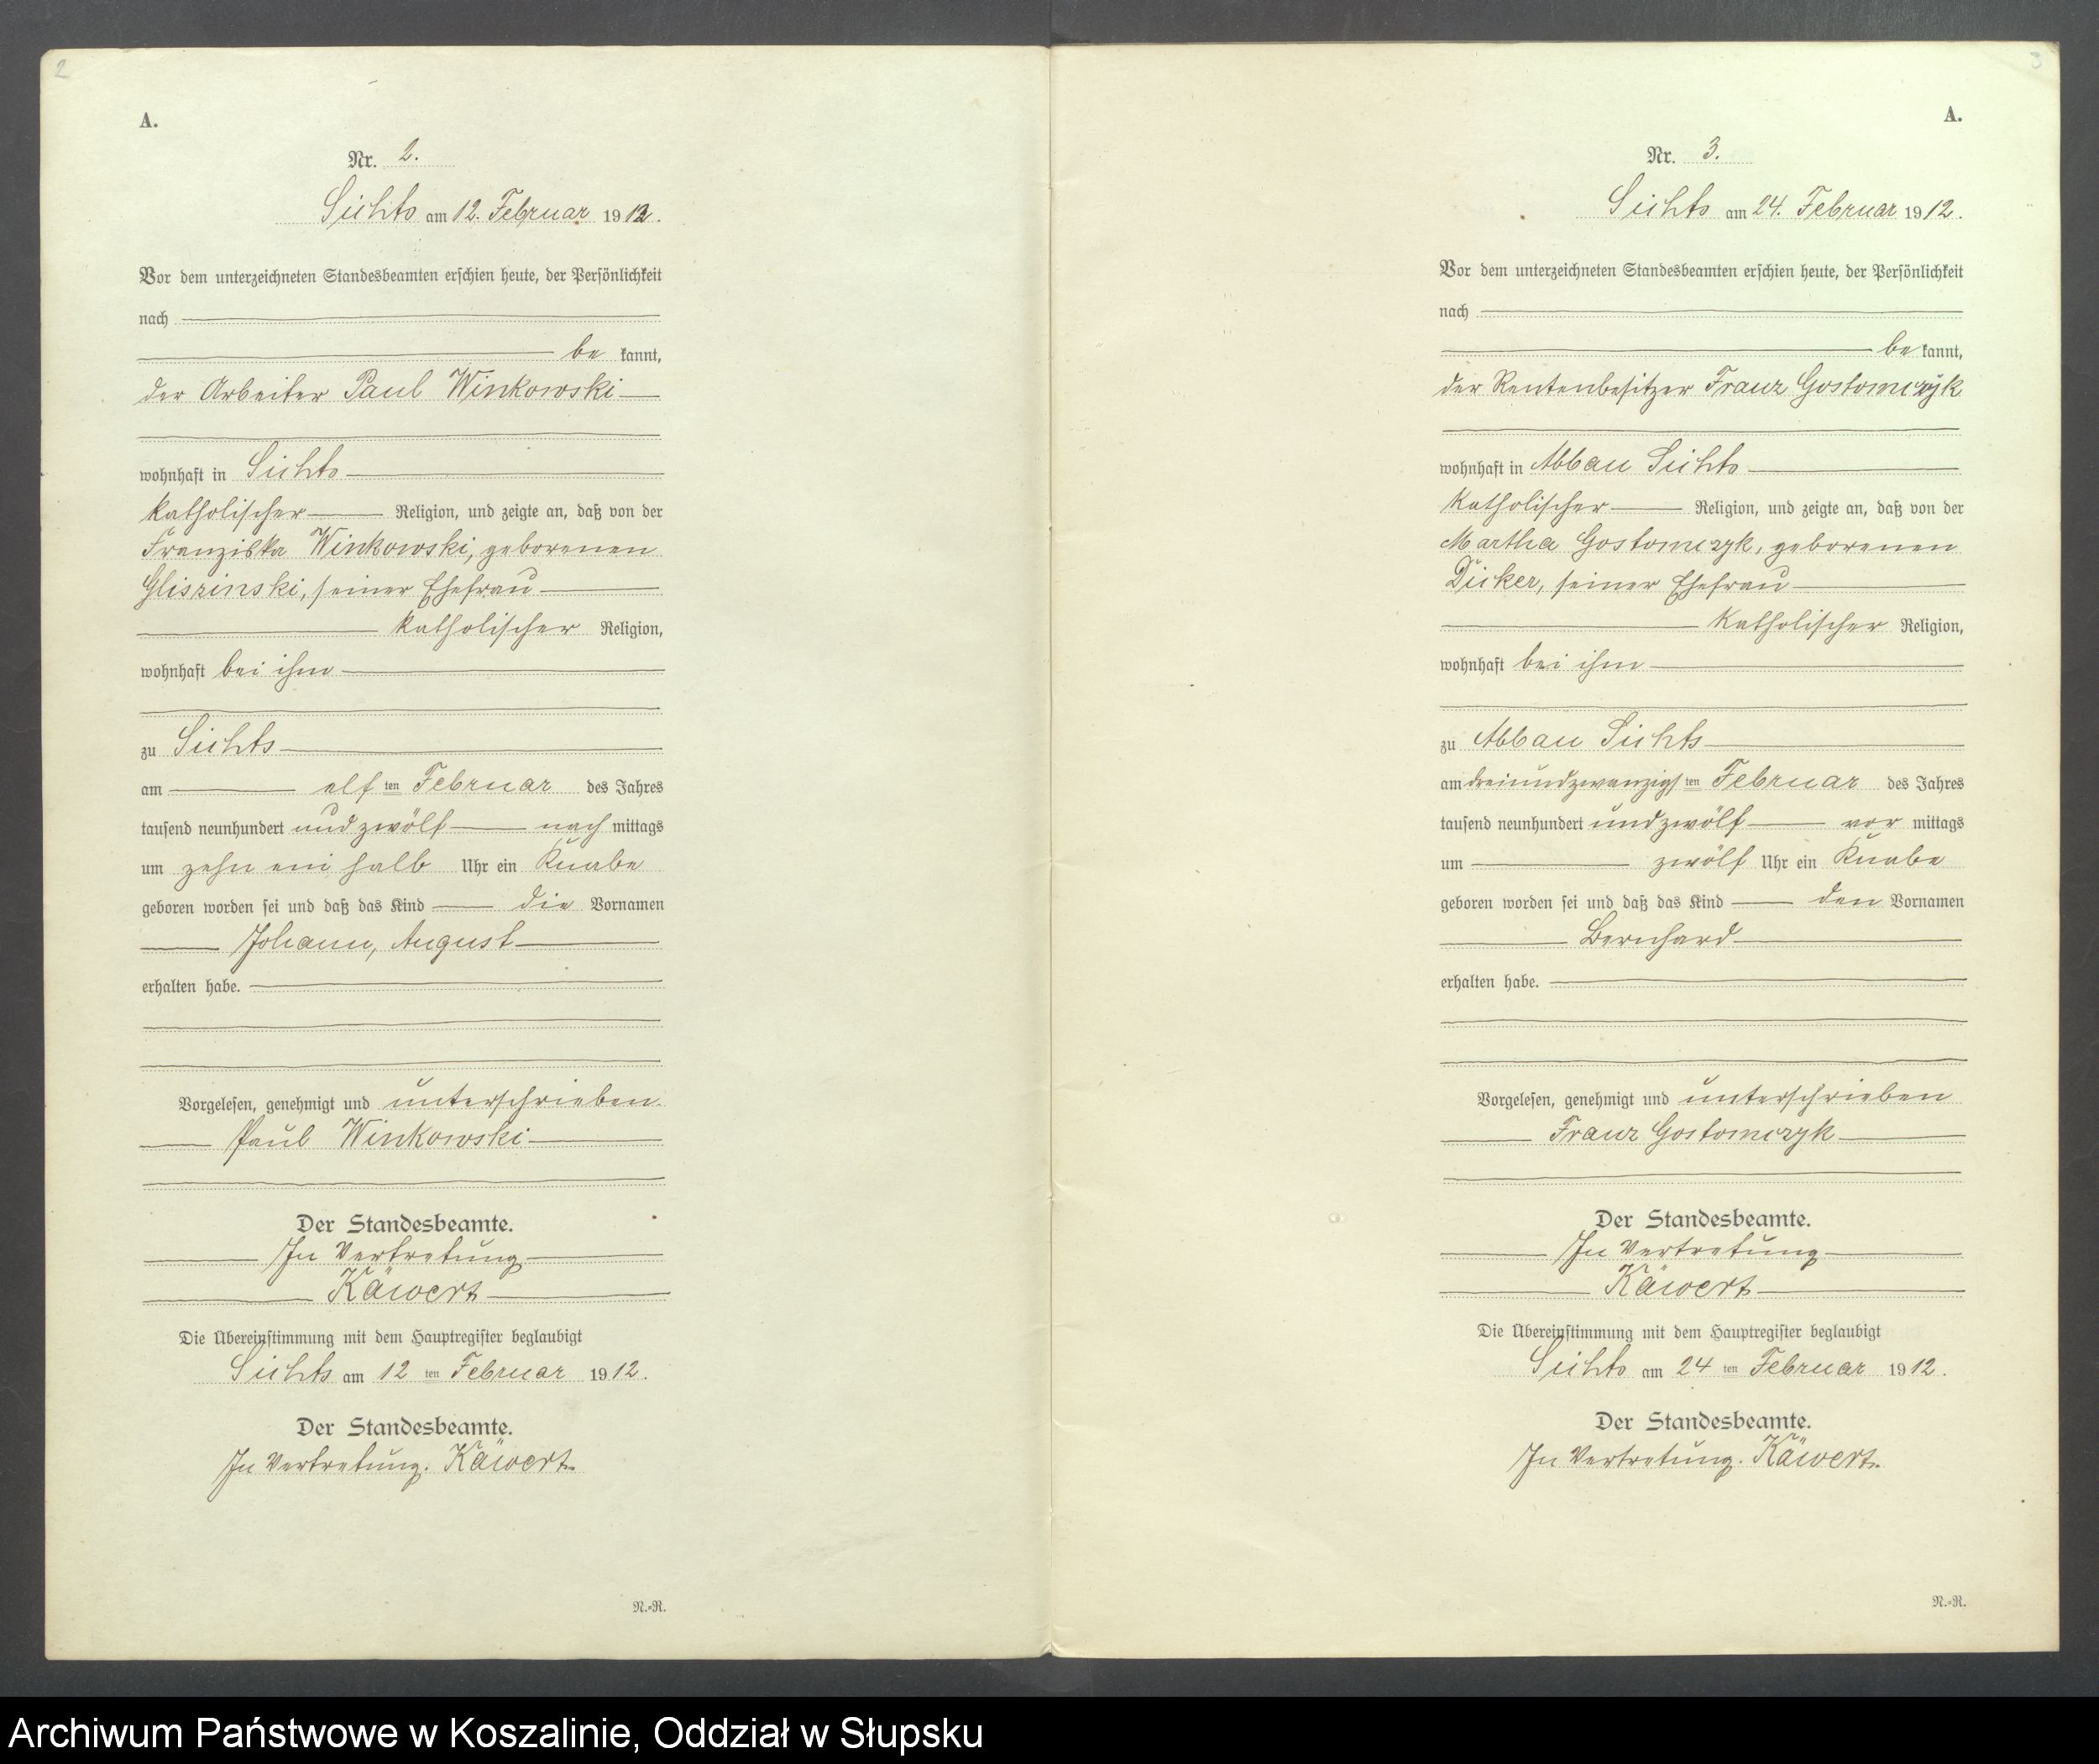 2
A.
Nr. 2.
Sichts am 12. Februar 1912.
Vor dem unterzeichneten Standesbeamten erschien heute, der Persönlichkeit
nach
be kannt,
der Arbeiter Paul Winkowski
wohnhaft in Sichts
katholischer Religion, und zeigte an, daß von der
Franziska Winkowski, geborenen
Gliszinski, seiner Ehefrau
katholischer Religion,
wohnhaft bei ihm
zu Sichts
am elf ten Februar des Jahres
tausend neunhundert und zwölf nach mittags
um zehn ein halb Uhr ein Knabe
geboren worden sei und daß das Kind die Vornamen
Johann, August
erhalten habe.
Vorgelesen, genehmigt und unterschrieben.
Paul Winkowski
Der Standesbeamte.
In Vertretung
Käwert
Die Übereinstimmung mit dem Hauptregister beglaubigt
Sichts am 12 ten Februar 1912.
Der Standesbeamte.
In Vertretung. Käwert.
N.-R.
3
A.
Nr. 3.
Sichts am 24. Februar 1912.
Vor dem unterzeichneten Standesbeamten erschien heute, der Persönlichkeit
nach
be kannt,
der Rentenbesitzer Franz Gostomczyk
wohnhaft in Abbau Sichts
katholischer Religion, und zeigte an, daß von der
Martha Gostomczyk, geborenen
Dücker, seiner Ehefrau
katholischer Religion,
wohnhaft bei ihm
zu Abbau Sichts
am dreiundzwanzigs ten Februar des Jahres
tausend neunhundert und zwölf vor mittags
um zwölf Uhr ein Knabe
geboren worden sei und daß das Kind den Vornamen
Bernhard
erhalten habe.
Vorgelesen, genehmigt und unterschrieben
Franz Gostomczyk
Der Standesbeamte.
In Vertretung
Käwert
Die Übereinstimmung mit dem Hauptregister beglaubigt
Sichts am 24 ten Februar 1912.
Der Standesbeamte.
In Vertretung. Käwert.
N.-R.
Archiwum Państwowe w Koszalinie, Oddział w Słupsku